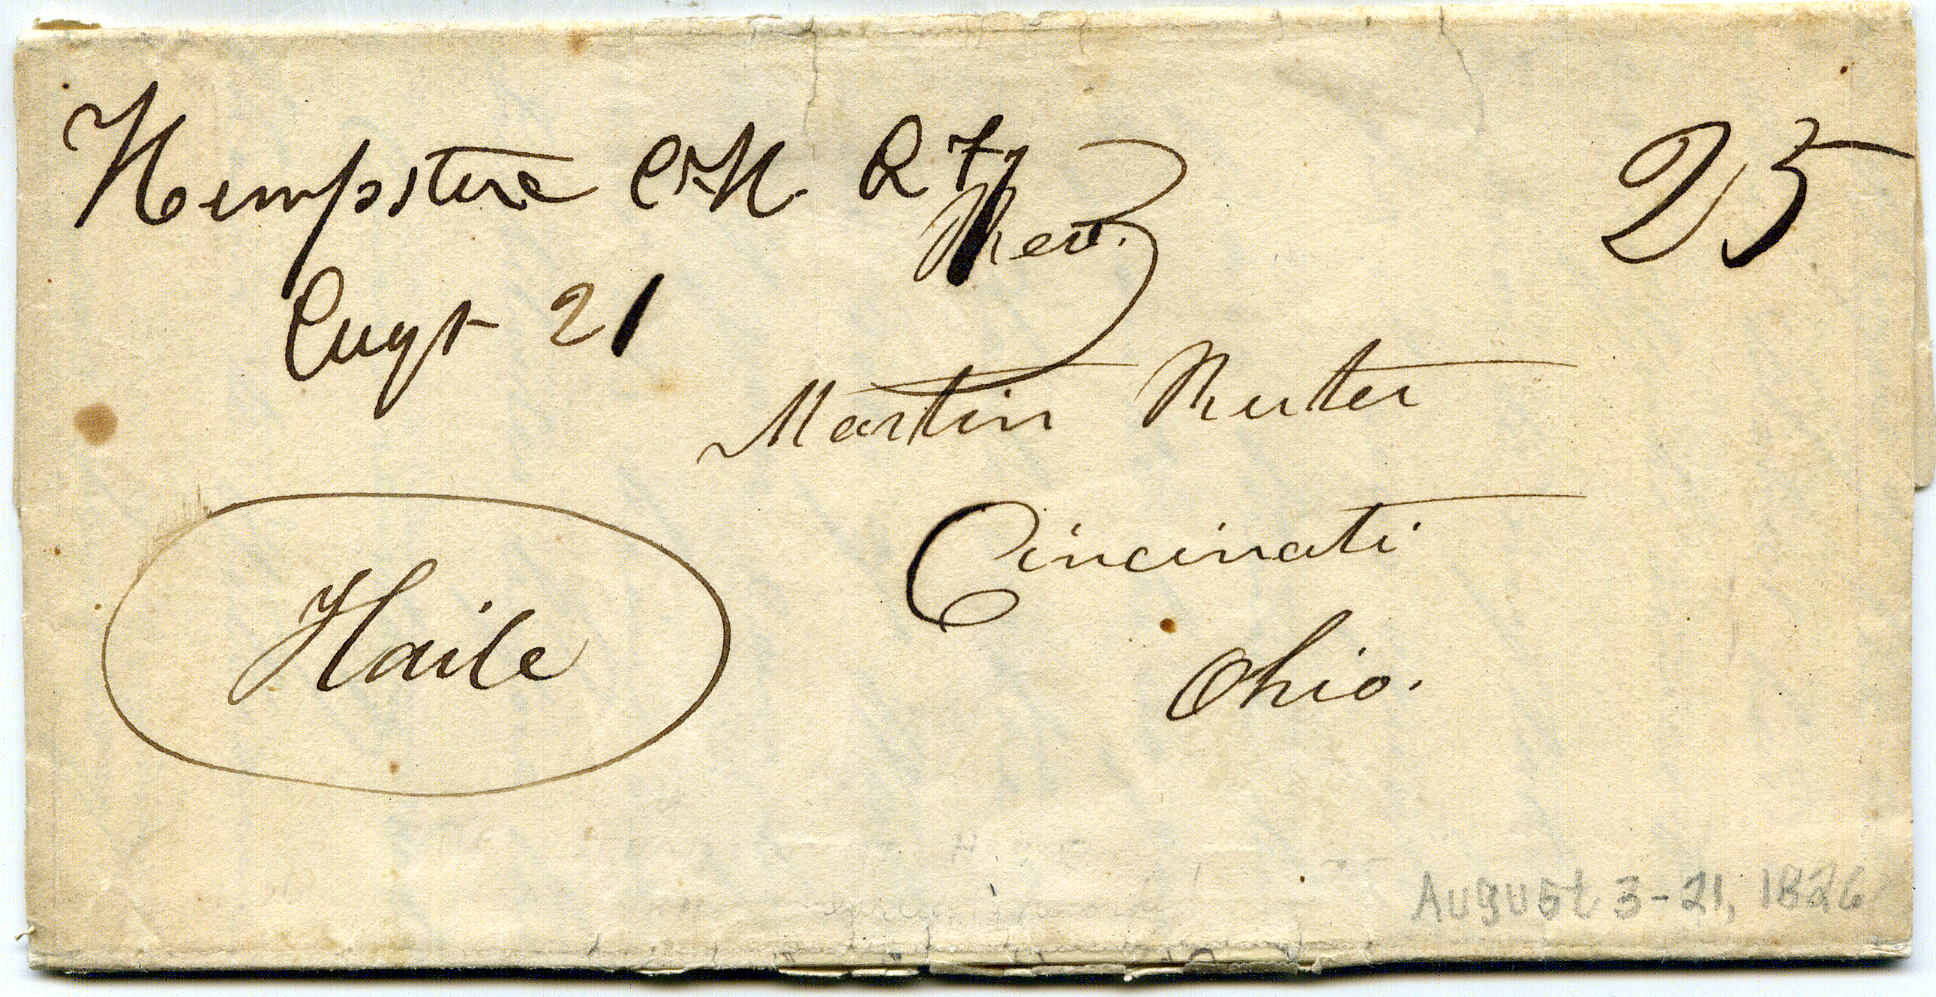 Hempstere C.H. A Ty 25
Augt 21
Rev.
Martin Ruter
Cincinati
Ohio.
Haile
August 3-21, 1826